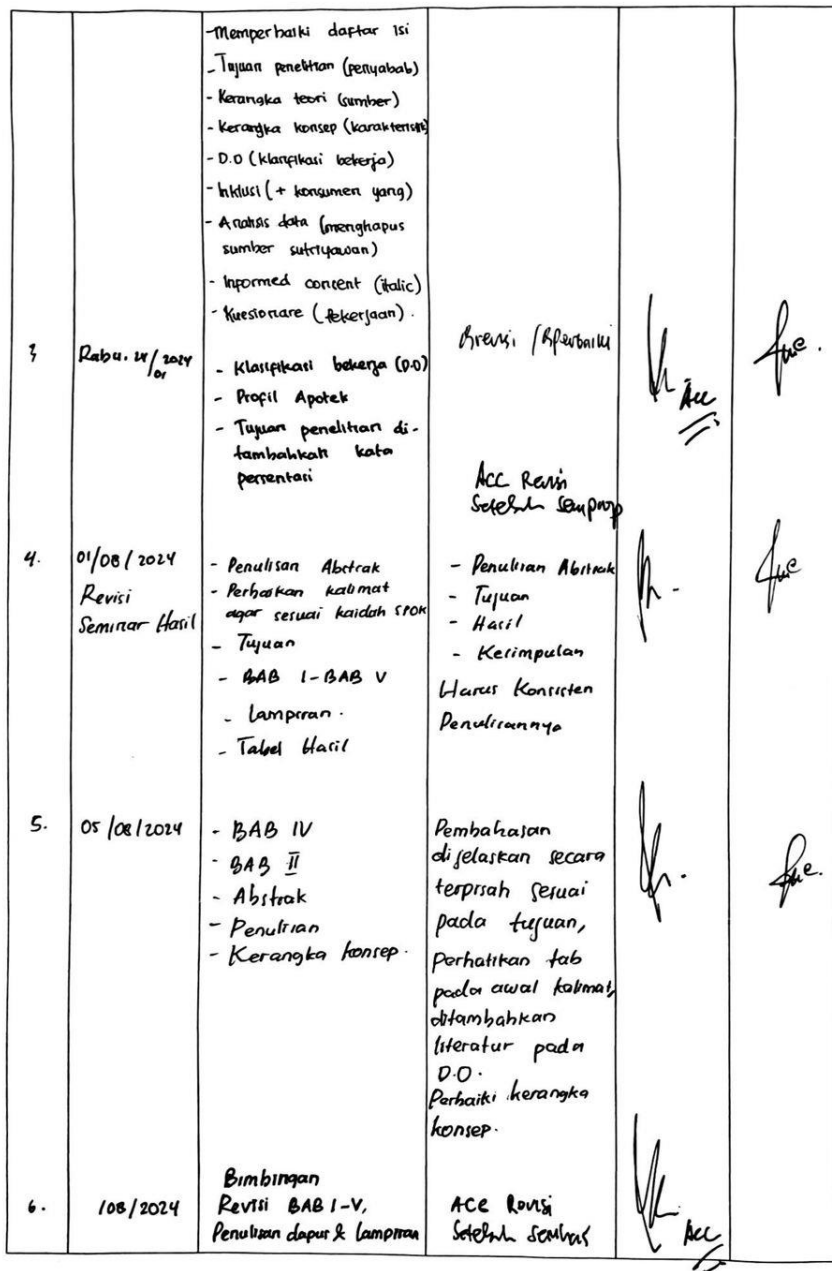 -Memperbaiki daftar isi
- Tujuan penelitian (penyabab)
- Kerangka teori (sumber)
- Kerangka konsep (karakteristik)
- D.O (klarifikasi bekerja)
- Inklusi (+ konsumen yang)
- Analisis data (menghapus
sumber sutriyawan)
- Informed concent (italic)
- Kuesionare (pekerjaan).
3 Rabu. /2024
01
- Klasifikasi bekerja (D.O)
- Profil Apotek
- Tujuan penelitian di-
tambahkan kata
persentasi
Revisi / Perbaiki
Acc
ACC Revisi
Setelah Semprop
4. 01/08/2024
Revisi
Seminar Hasil
- Penulisan Abstrak
- Perhatikan kalimat
agar sesuai kaidah SPOK
- Tujuan
- BAB I-BAB V
- Lampiran.
- Tabel Hasil
- Penulisan Abstrak
- Tujuan
- Hasil
- Kesimpulan
Harus Konsisten
Penulisannya
5. 05/08/2024
- BAB IV
- BAB II
- Abstrak
- Penulisan
- Kerangka konsep.
Pembahasan
dijelaskan secara
terpisah sesuai
pada tujuan,
perhatikan tab
pada awal kalimat,
ditambahkan
literatur pada
D.O.
Perbaiki kerangka
konsep.
6. /08/2024
Bimbingan
Revisi BAB I-V,
Penulisan dapus & lampiran
ACC Revisi
Setelah Semhas
Acc